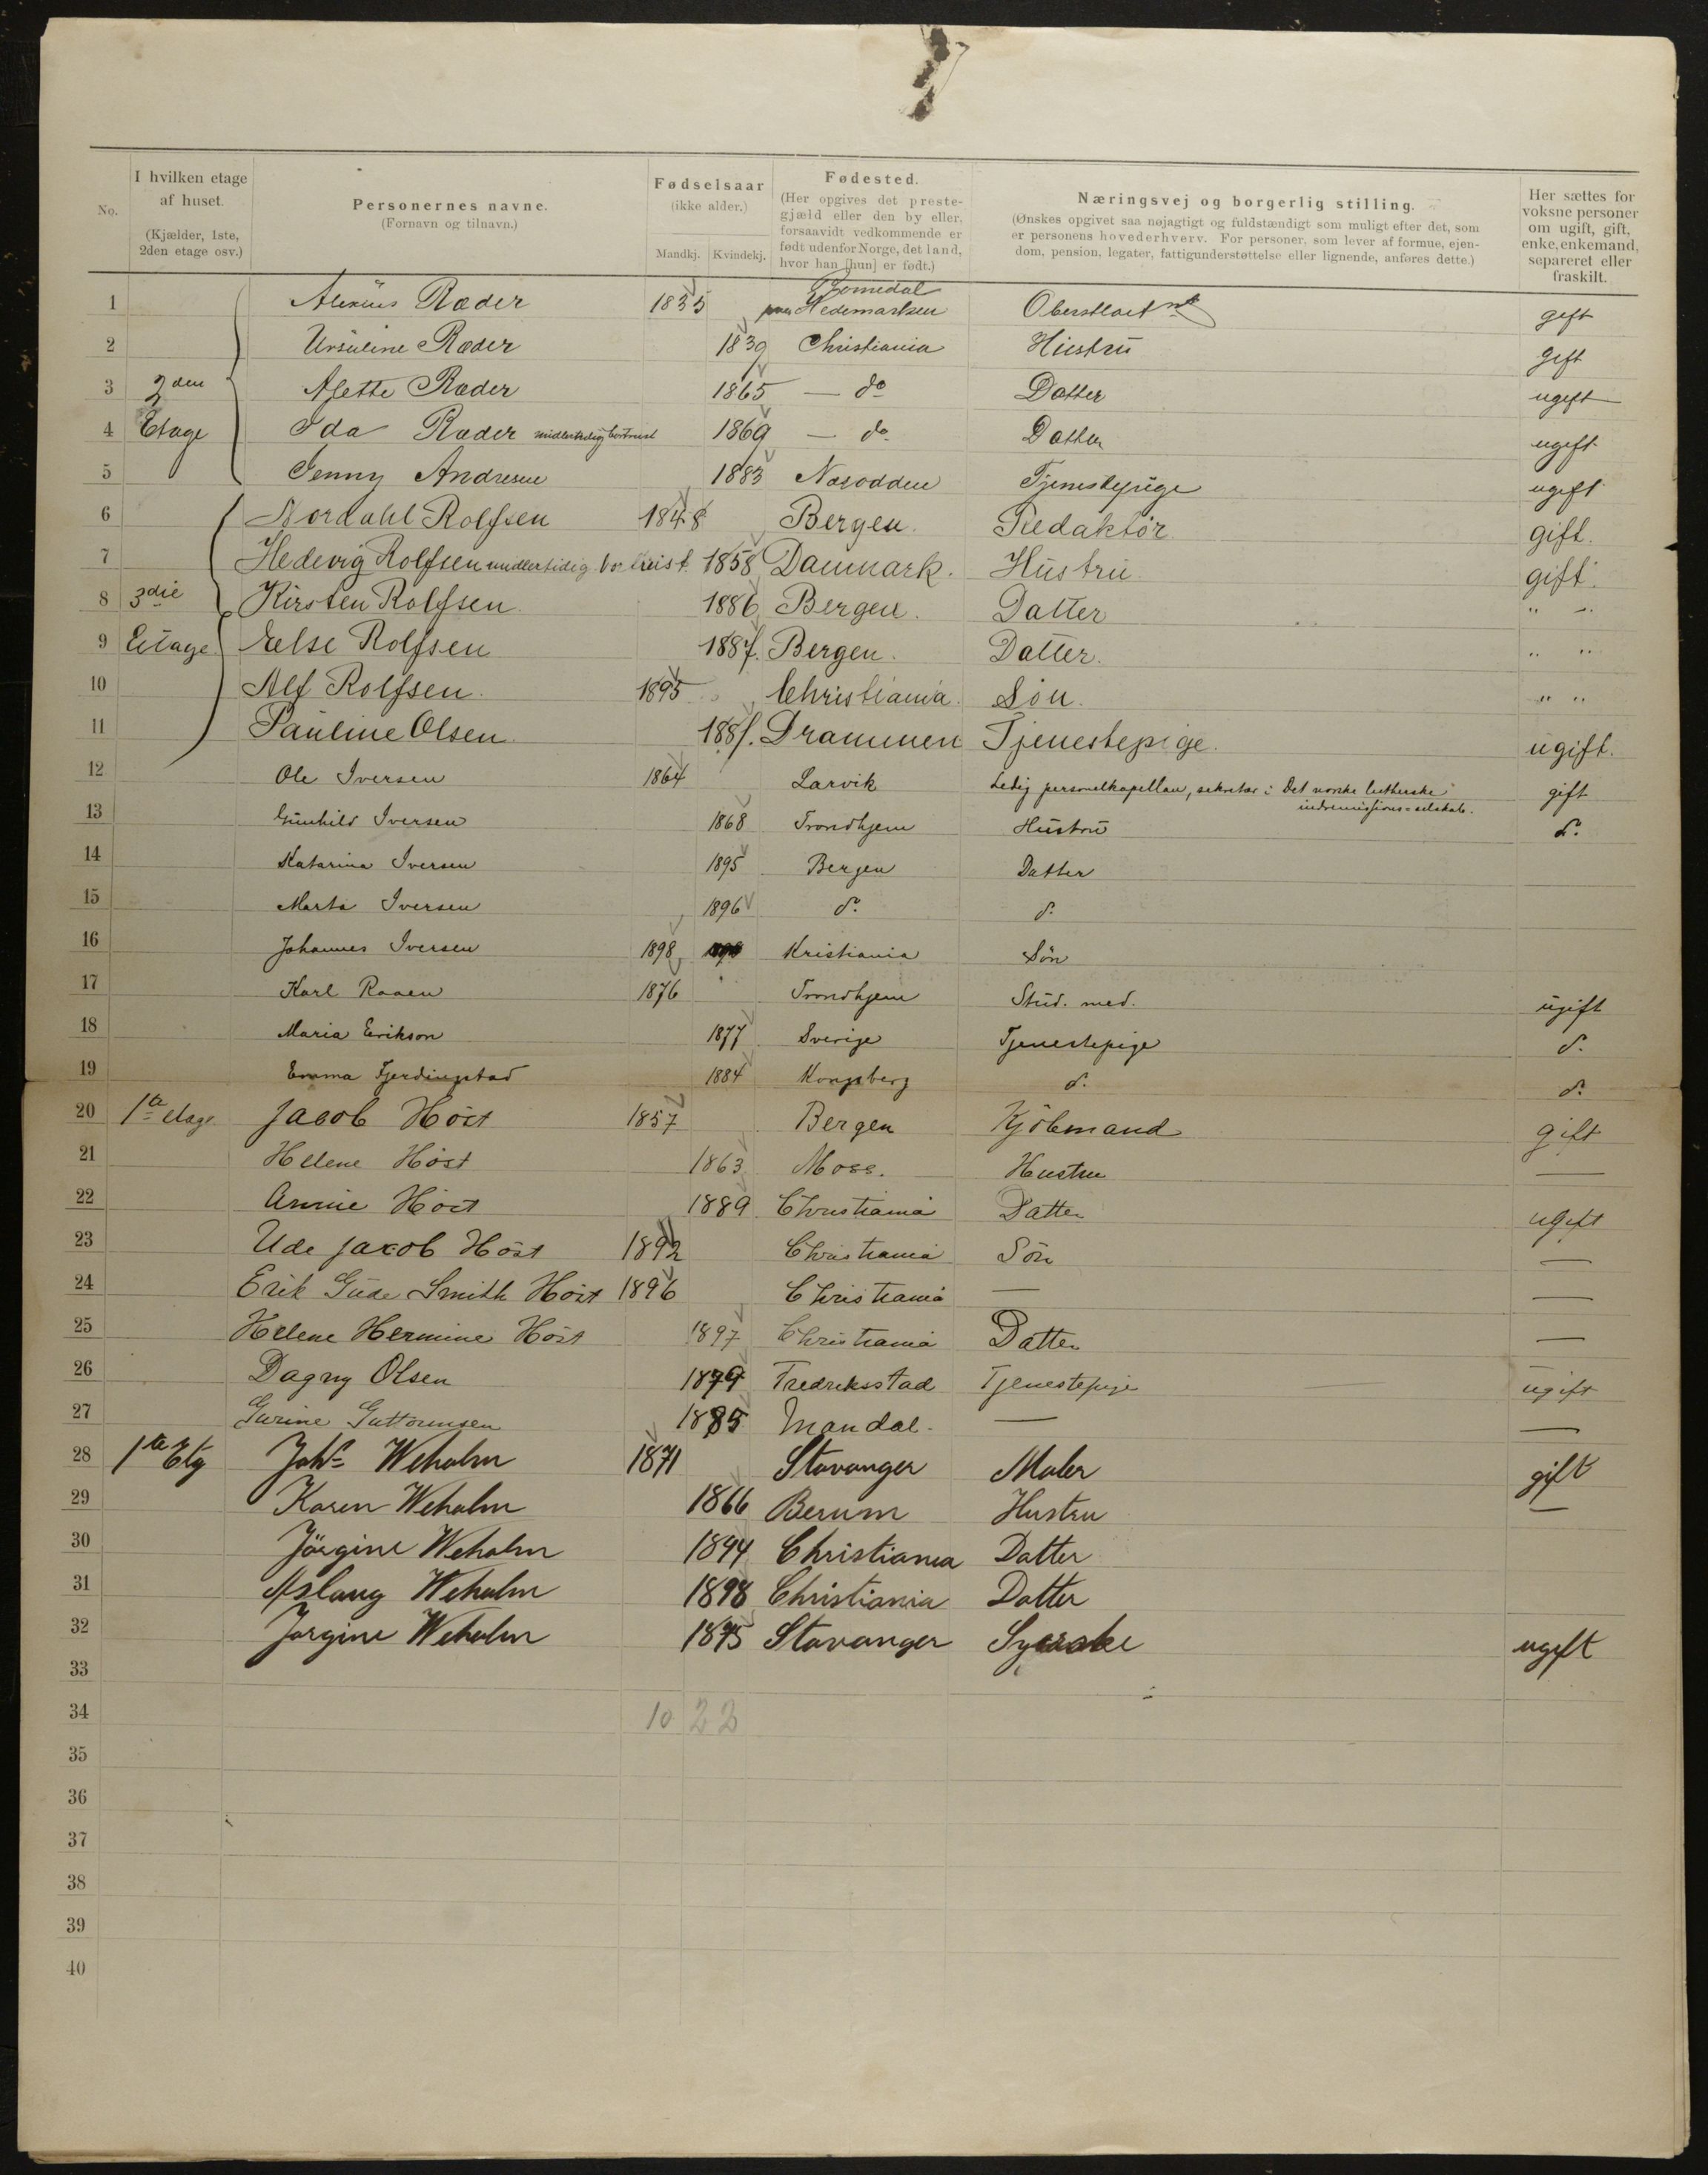 No.
I hvilken etage af huset. (Kjælder, 1ste, 2den etage osv.)
Personernes navne. (Fornavn og tilnavn.)
Fødselsaar (ikke alder.) Mandkj. Kvindekj.
Fødested. (Her opgives det prestegjæld eller den by eller, forsaavidt vedkommende er født udenfor Norge, det land, hvor han [hun] er født.)
Næringsvej og borgerlig stilling. (Ønskes opgivet saa nøjagtigt og fuldstændigt som muligt efter det, som er personens hovederhverv. For personer, som lever af formue, ejendom, pension, legater, fattigunderstøttelse eller lignende, anføres dette.)
Her sættes for voksne personer om ugift, gift, enke, enkemand, separeret eller fraskilt.
1 Alexius Ræder 1835 Romedal Hedemarken Oberstløit gift
2 Ursuline Ræder 1839 Christiania Hustru gift
3 2den AJette Ræder 1865 — do Datter ugift
4 Etage Ida Ræder midlertidig bortreist 1869 — do Datter ugift
5 Jenny Andresen 1883 Næsodden Tjenestepige ugift
6 Nordahl Rolfsen 1848 Bergen. Redaktør gift.
7 Hedevig Rolfsen midlertidig bortreist. 1858 Danmark. Hustru gift.
8 3die Kirsten Rolfsen. 1886 Bergen. Datter " "
9 Etage Else Rolfsen 1887. Bergen. Datter. " "
10 Alf Rolfsen. 1895 Christiania. Søn. " "
11 Pauline Olsen. 188 . Drammen Tjenestepige. ugift.
12 Ole Iversen 1864 Larvik Ledig personelkapellan, sekretær i Det norske lutherske indremissions-selskab. gift
13 Gunhild Iversen 1868 Trondhjem Hustru d.
14 Katarina Iversen 1895 Bergen Datter
15 Marta Iversen 1896 d. d.
16 Johannes Iversen 1898 Kristiania Søn
17 Karl Raaen 1876 Trondhjem Stud. med. ugift
18 Maria Erikson 1877 Sverige Tjenestepige d.
19 Emma Fjerdingstad 1884 Kongsberg d. d.
20 1te Etage Jacob Høst 1857 Bergen Kjøbmand gift
21 Helene Høst 1863 Moss. Hustru —
22 Annie Høst 1889 Christiania Datter ugift
23 Ude Jacob Høst 1892 Christiania Søn —
24 Erik Gude Smith Høst 1896 Christiania — —
25 Helene Hermine Høst 1897 Christiania Datter —
26 Dagny Olsen 1879 Fredriksstad Tjenestepige ugift
27 Gurine Guttormsen 1885 Mandal. — —
28 1te Etg Johs Weholm 1871 Stavanger Maler gift
29 Karen Weholm 1866 Berum Hustru —
30 Jørgine Weholm 1894 Christiania Datter
31 Aslaug Weholm 1898 Christiania Datter
32 Jørgine Weholm 1875 Stavanger Syerske ugift
33
34 10 22
35
36
37
38
39
40